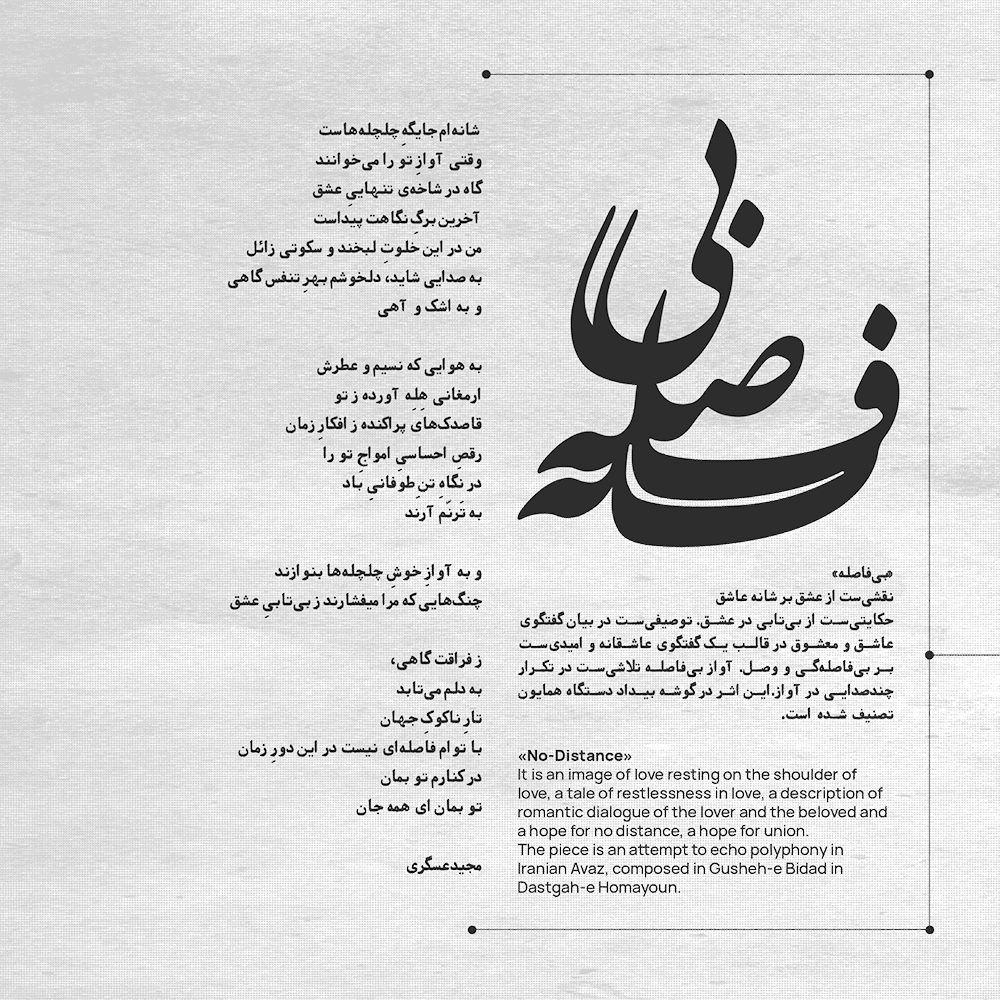 بی‌فاصله
شانه‌ام جایگهِ چلچله‌هاست
وقتی آوازِ تو را می‌خوانند
گاه در شاخه‌ی تنهاییِ عشق
آخرین برگِ نگاهت پیداست
من در این خلوتِ لبخند و سکوتی زائل
به صدایی شاید، دلخوشم بهرِ تنفس گاهی
و به اشک و آهی
به هوایی که نسیم و عطرش
ارمغانی هِلِه آورده ز تو
قاصدک‌های پراکنده ز افکارِ زمان
رقصِ احساسیِ امواجِ تو را
در نگاهِ تنِ طوفانیِ باد
به تَرنّم آرند
و به آوازِ خوشِ چلچله‌ها بنوازند
چنگ‌هایی که مرا میفشارند ز بی‌تابیِ عشق
ز فراقت گاهی،
به دلم می‌تابد
تارِ ناکوکِ جهان
با توام فاصله‌ای نیست در این دورِ زمان
در کنارم تو بمان
تو بمان ای همه جان
مجیدعسگری
«بی‌فاصله»
نقشی‌ست از عشق بر شانه عاشق
حکایتی‌ست از بی‌تابی در عشق. توصیفی‌ست در بیان گفتگوی
عاشق و معشوق در قالب یک گفتگوی عاشقانه و امیدی‌ست
بر بی‌فاصله‌گی و وصل. آواز بی‌فاصله تلاشی‌ست در تکرار
چندصدایی در آواز.این اثر در گوشه بیداد دستگاه همایون
تصنیف شده است.
«No-Distance»
It is an image of love resting on the shoulder of
love, a tale of restlessness in love, a description of
romantic dialogue of the lover and the beloved and
a hope for no distance, a hope for union.
The piece is an attempt to echo polyphony in
Iranian Avaz, composed in Gusheh-e Bidad in
Dastgah-e Homayoun.